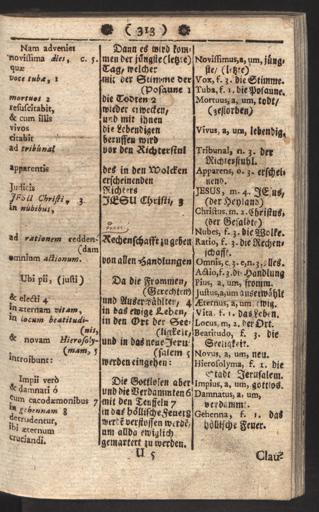 ( 313 )
Nam adveniet
novissima dies, c. 5.
quæ
voce tubæ, 1
mortuos 2
resuscitabit,
& cum illis
vivos
citabit
ad tribunal
apparentis
Judicis
JESU Christi, 3
in nubibus,
ad rationem redden-
(dam
omnium actionum.
Ubi pii, (justi)
& electi 4
in æternam vitam,
in locum beatitudi-
(nis,
& novam Hierosoly-
(mam, 5
introibunt:
Impii verò
& damnati 6
cum cacodæmonibus 7
in gehennam 8
detrudentur,
ibi æternum
cruciandi.
Dann es wird kom-
men der jüngste (letzte)
Tag, welcher
mit der Stimme der
(Posaune 1
die Todten 2
wieder erwecken,
und mit ihnen
die Lebendigen
beruffen wird
vor den Richterstul
des in den Wolcken
erscheinenden
Richters
JESU Christi, 3
Rechenschafft zu geben
von allen Handlungen
Da die Frommen,
(Gerechten)
und Auserwählter, 4
in das ewige Leben,
in den Ort der See-
(ligkeit,
und in das neue Jeru-
(salem 5
werden eingehen:
Die Gottlosen aber
und die Verdammten 6
mit den Teuffeln 7
in das höllische Feuer 8
um allda ewiglich
gemartert zu werden.
Novissimus, a, um, jüng-
ste/ (letzte)
Vox, f. 3. die Stimme.
Tuba, f. 1. die Posaune.
Mortuus, a, um, todt/
(gestorben)
Vivus, a, um, lebendig.
Tribunal, n. 3. der
Richterstuhl.
Apparens, o. 3. erschei-
nend.
JESUS, m. 4. JEsus,
(der Heyland)
Christus, m. 2. Christus,
(der Gesalbte)
Nubes, f. 3. die Wolke.
Ratio, f. 3. die Rechen-
schafft.
Omnis, c. 3. e, n. 3. alles.
Actio, f. 3. die Handlung
Pius, a, um, fromm.
Justus, a, um
Æternus, a, um, ewig.
Vita, f. 1. das Leben.
Locus, m. 2. der Ort.
Beatitudo, f. 3. die
Seeligkeit.
Novus, a, um, neu.
Hierosolyma, f. 1. die
Stadt Jerusalem.
Impius, a, um, gottlos.
Damnatus, a, um,
verdammt.
Gehenna, f. 1. das
höllische Feuer.
U 5
Clau-